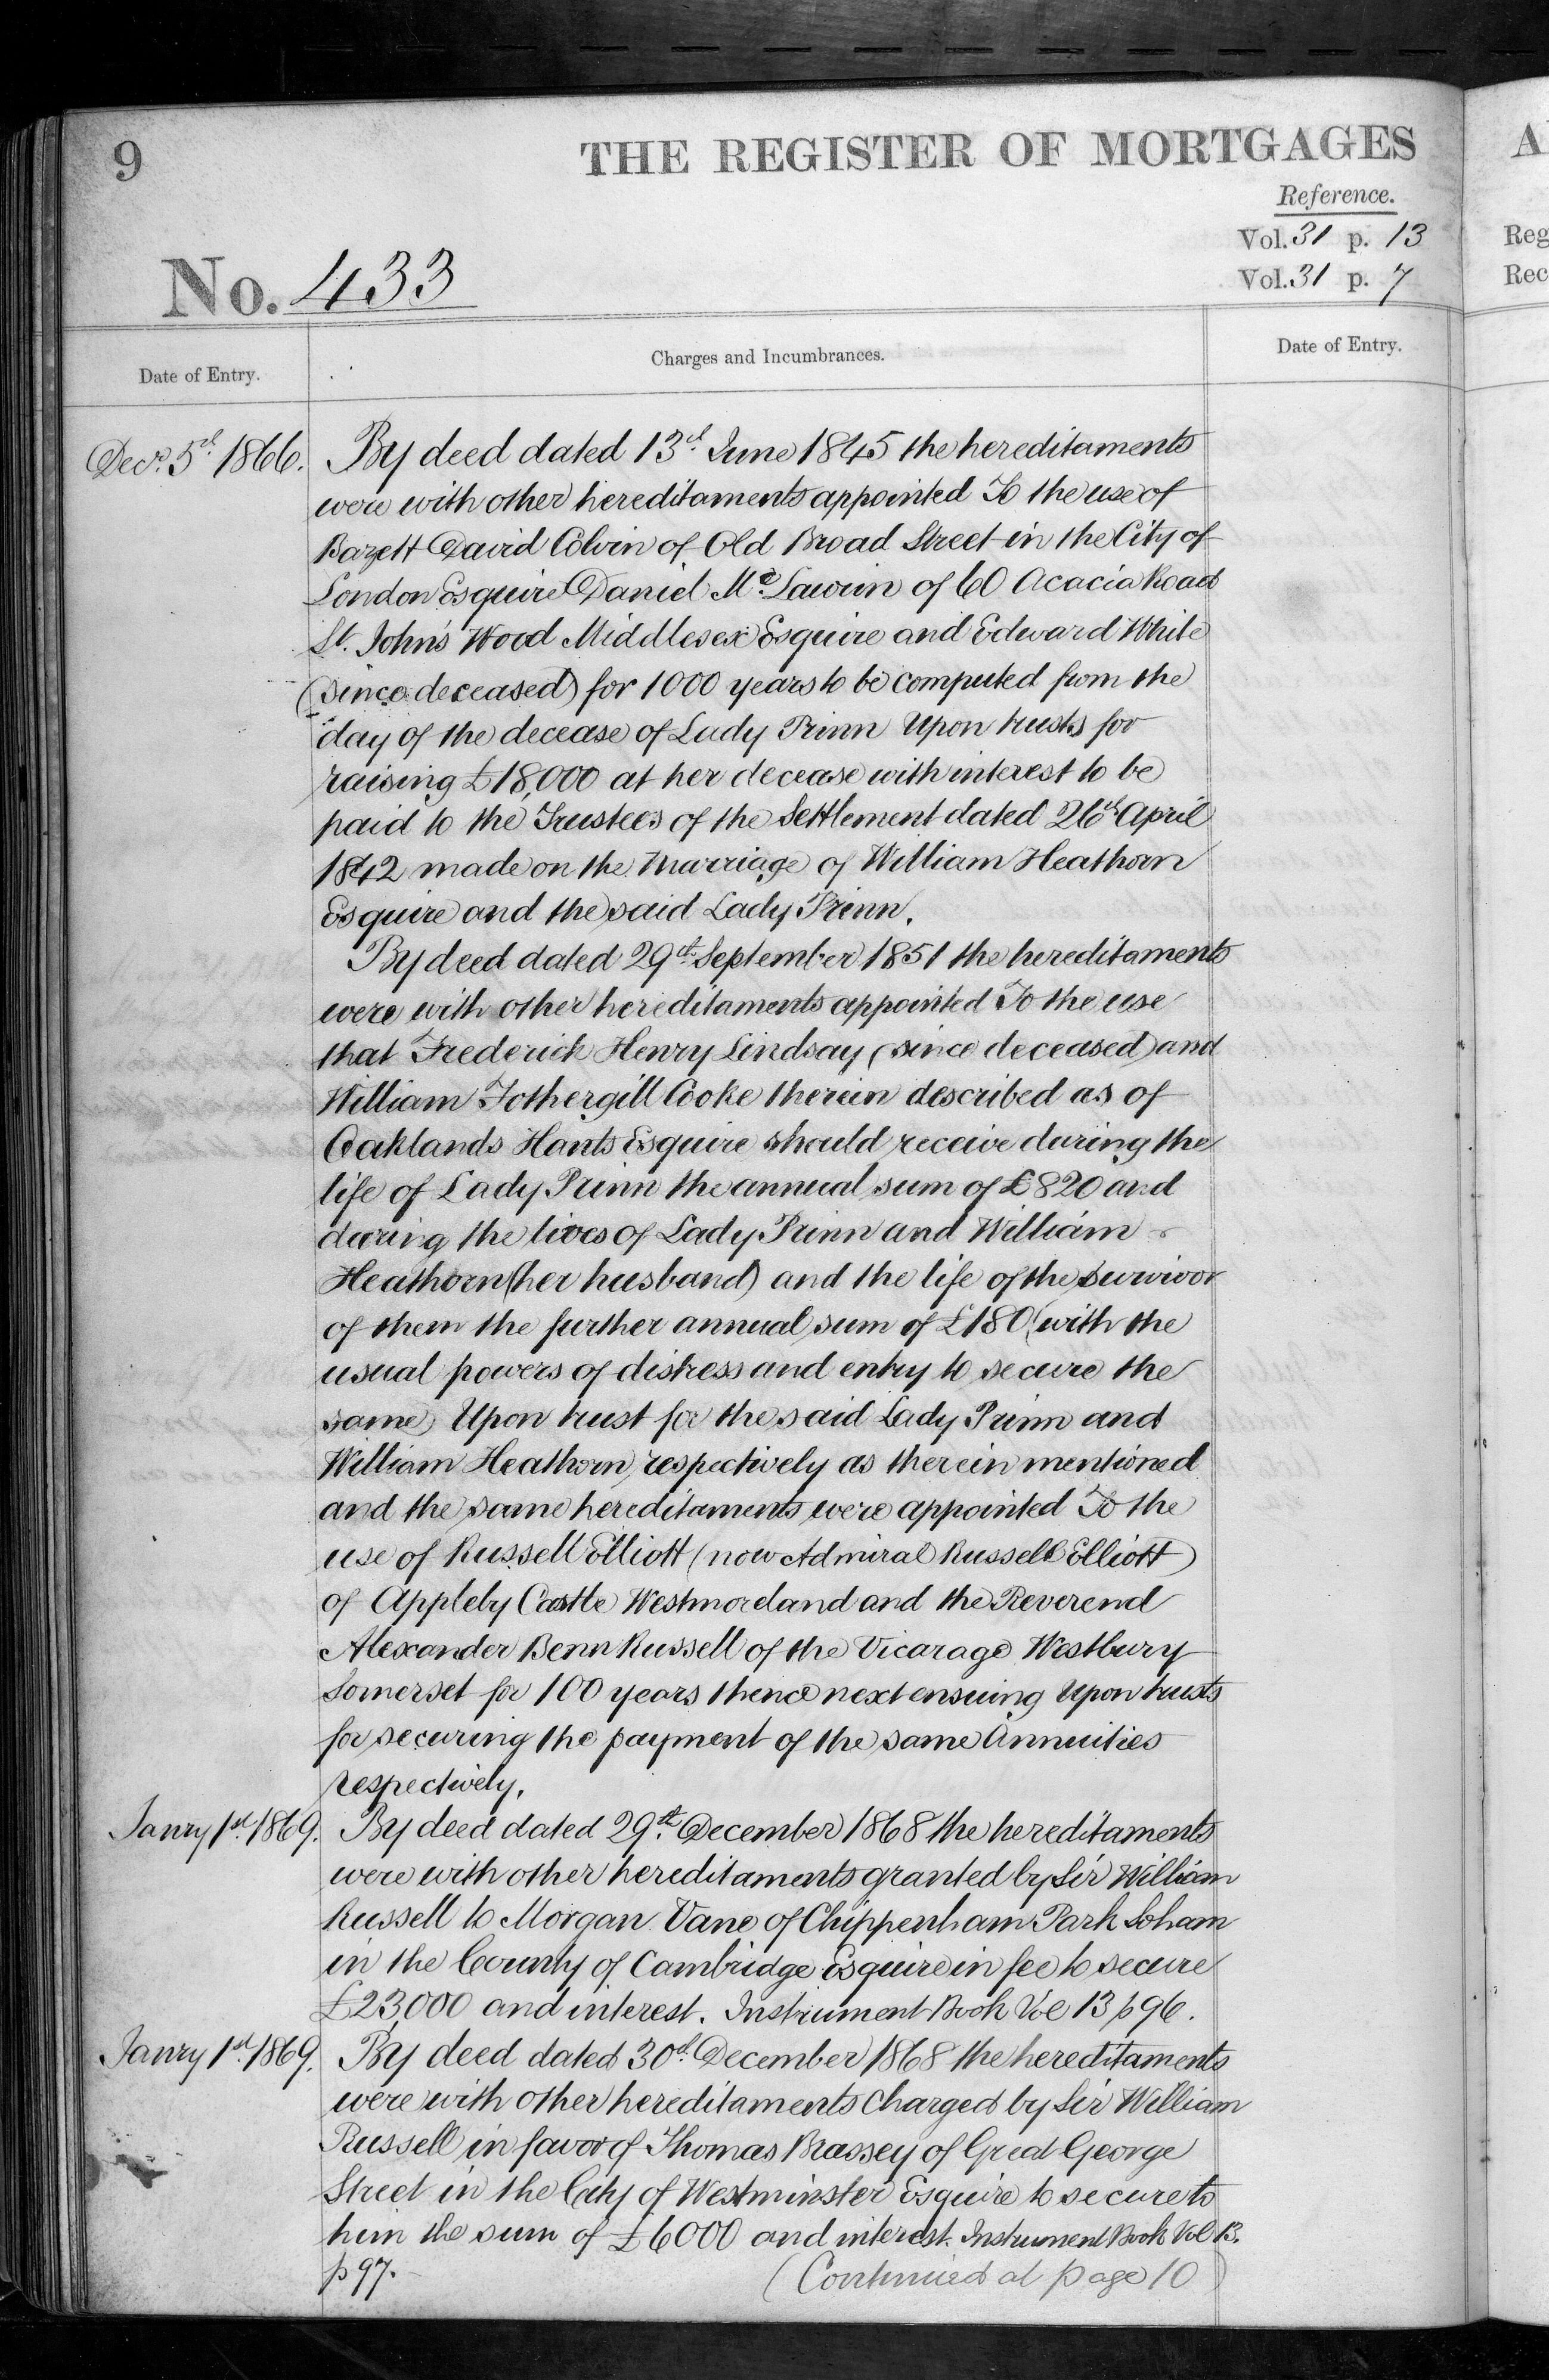 9
THE REGISTER OF MORTGAGES
A
Reference.
Vol. 31 p. 13
Vol. 31 p. 7
Reg
Rec
No. 433
Date of Entry.
Charges and Incumbrances.
Date of Entry.
Decr. 5th 1866.
By deed dated 13th June 1845 the hereditaments
were with other hereditaments appointed To the use of
Bazett David Colvin of Old Broad Street in the City of
London Esquire Daniel Mc.Laurin of 60 Acacia Road
St. John's Wood Middlesex Esquire and Edward White
(since deceased) for 1000 years to be computed from the
day of the decease of Lady Prinn Upon trusts for
raising £18,000 at her decease with interest to be
paid to the Trustees of the Settlement dated 26th April
1842 made on the marriage of William Heathorn
Esquire and the said Lady Prinn.
By deed dated 29th September 1851 the hereditaments
were with other hereditaments appointed To the use
that Frederick Henry Lindsay (since deceased) and
William Fothergill Cooke therein described as of
Oaklands Hants Esquire should receive during the
life of Lady Prinn the annual sum of £820 and
during the lives of Lady Prinn and William
Heathorn (her husband) and the life of the survivor
of them the further annual sum of £180 (with the
usual powers of distress and entry to secure the
same) Upon trust for the said Lady Prinn and
William Heathorn respectively as therein mentioned
and the same hereditaments were appointed To the
use of Russell Elliott (now Admiral Russell Elliott)
of Appleby Castle Westmoreland and the Reverend
Alexander Benn Russell of the Vicarage Westbury
Somerset for 100 years thence next ensuing Upon trusts
for securing the payment of the same Annuities
respectively.
Janry 1st. 1869.
By deed dated 29th. December 1868 the hereditaments
were with other hereditaments granted by Sir William
Russell to Morgan Vane of Chippenham Park Soham
in the County of Cambridge Esquire in fee to secure
£23,000 and interest. Instrument Book Vol 13 p 96.
Janry 1st. 1869.
By deed dated 30th December 1868 the hereditaments
were with other hereditaments Charged by Sir William
Russell in favor of Thomas Brassey of Great George
Street in the City of Westminster Esquire to secure to
him the sum of £6000 and interest. Instrument Book Vol 13.
p 97.
(Continued at page 10)